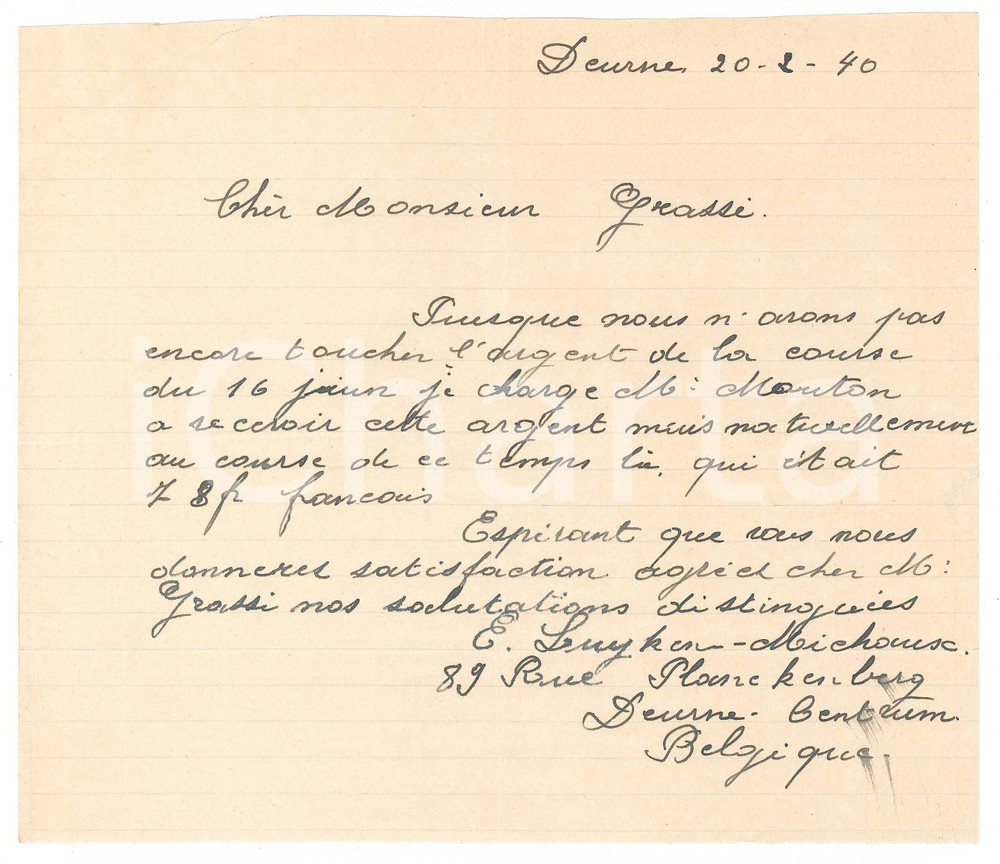 Deurne 20-2-40
Chèr Monsieur Grassi.
Puisque nous n'avons pas
encore toucher l'argent de la course
du 16 jiun je charge Mr Mouton
a recevoir cette argent mais naturellement
au course de ce temps là, qui était
78 fr francais
Espérant que vous nous
donneres satisfaction agrées cher Mr:
Grassi nos salutations distinguées
E. Luyken-Michaux.
89 Rue Planckenberg
Deurne-Centrum.
Belgique.
iCharta